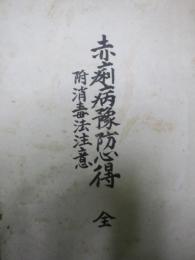 赤痢病豫防心得 全
附消毒法注意